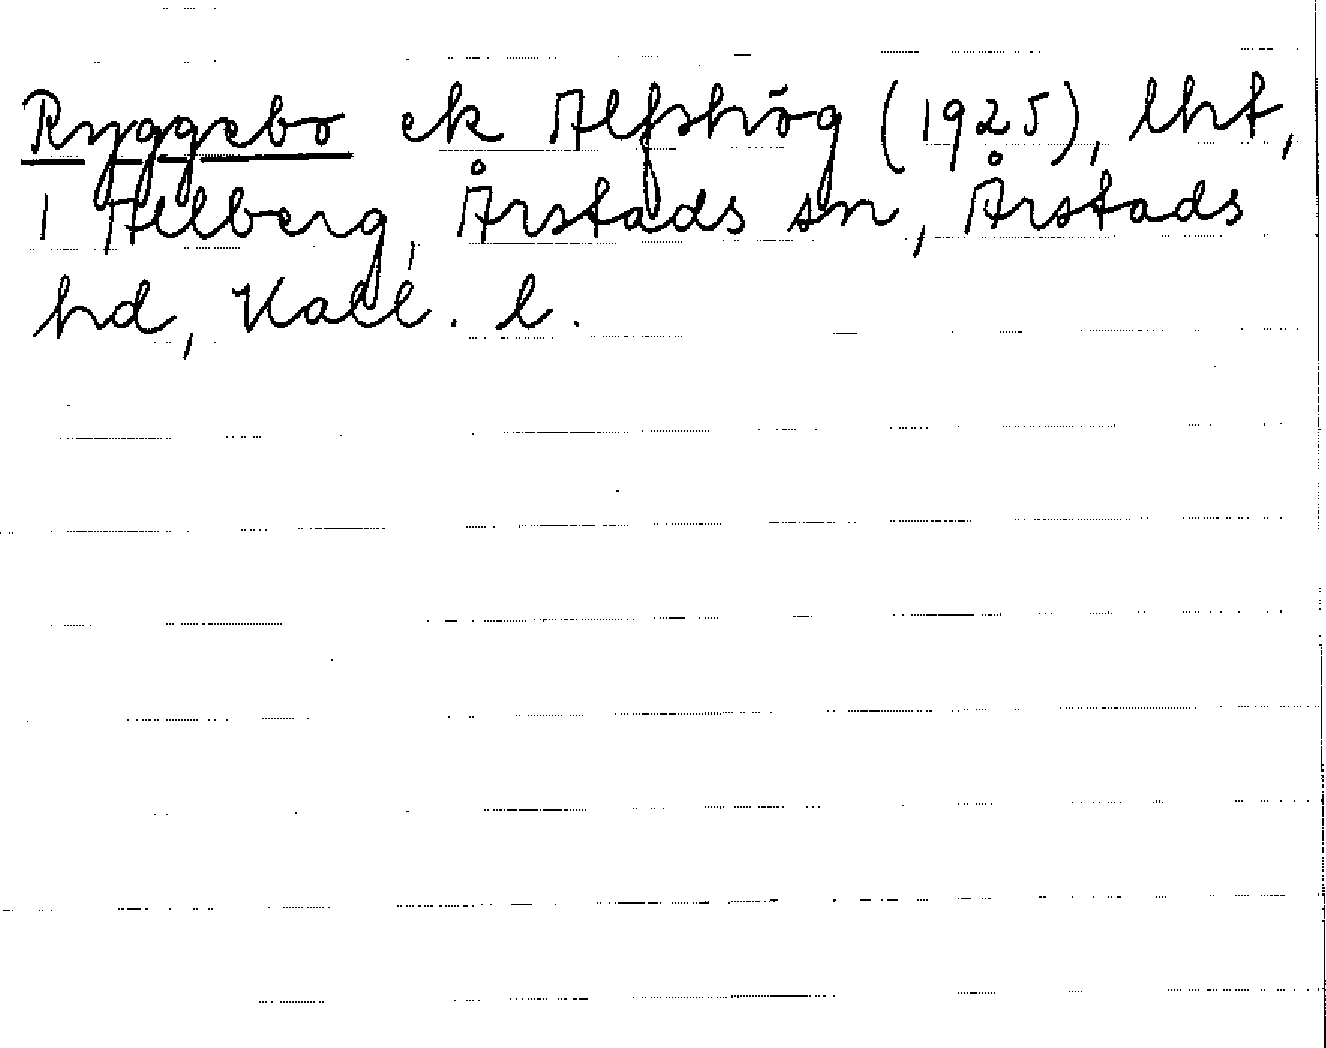 Ryggebo ek Alfshög (1925), lht,
1 Allberg, Årstads sn, Årstads
hd, Hall. l.